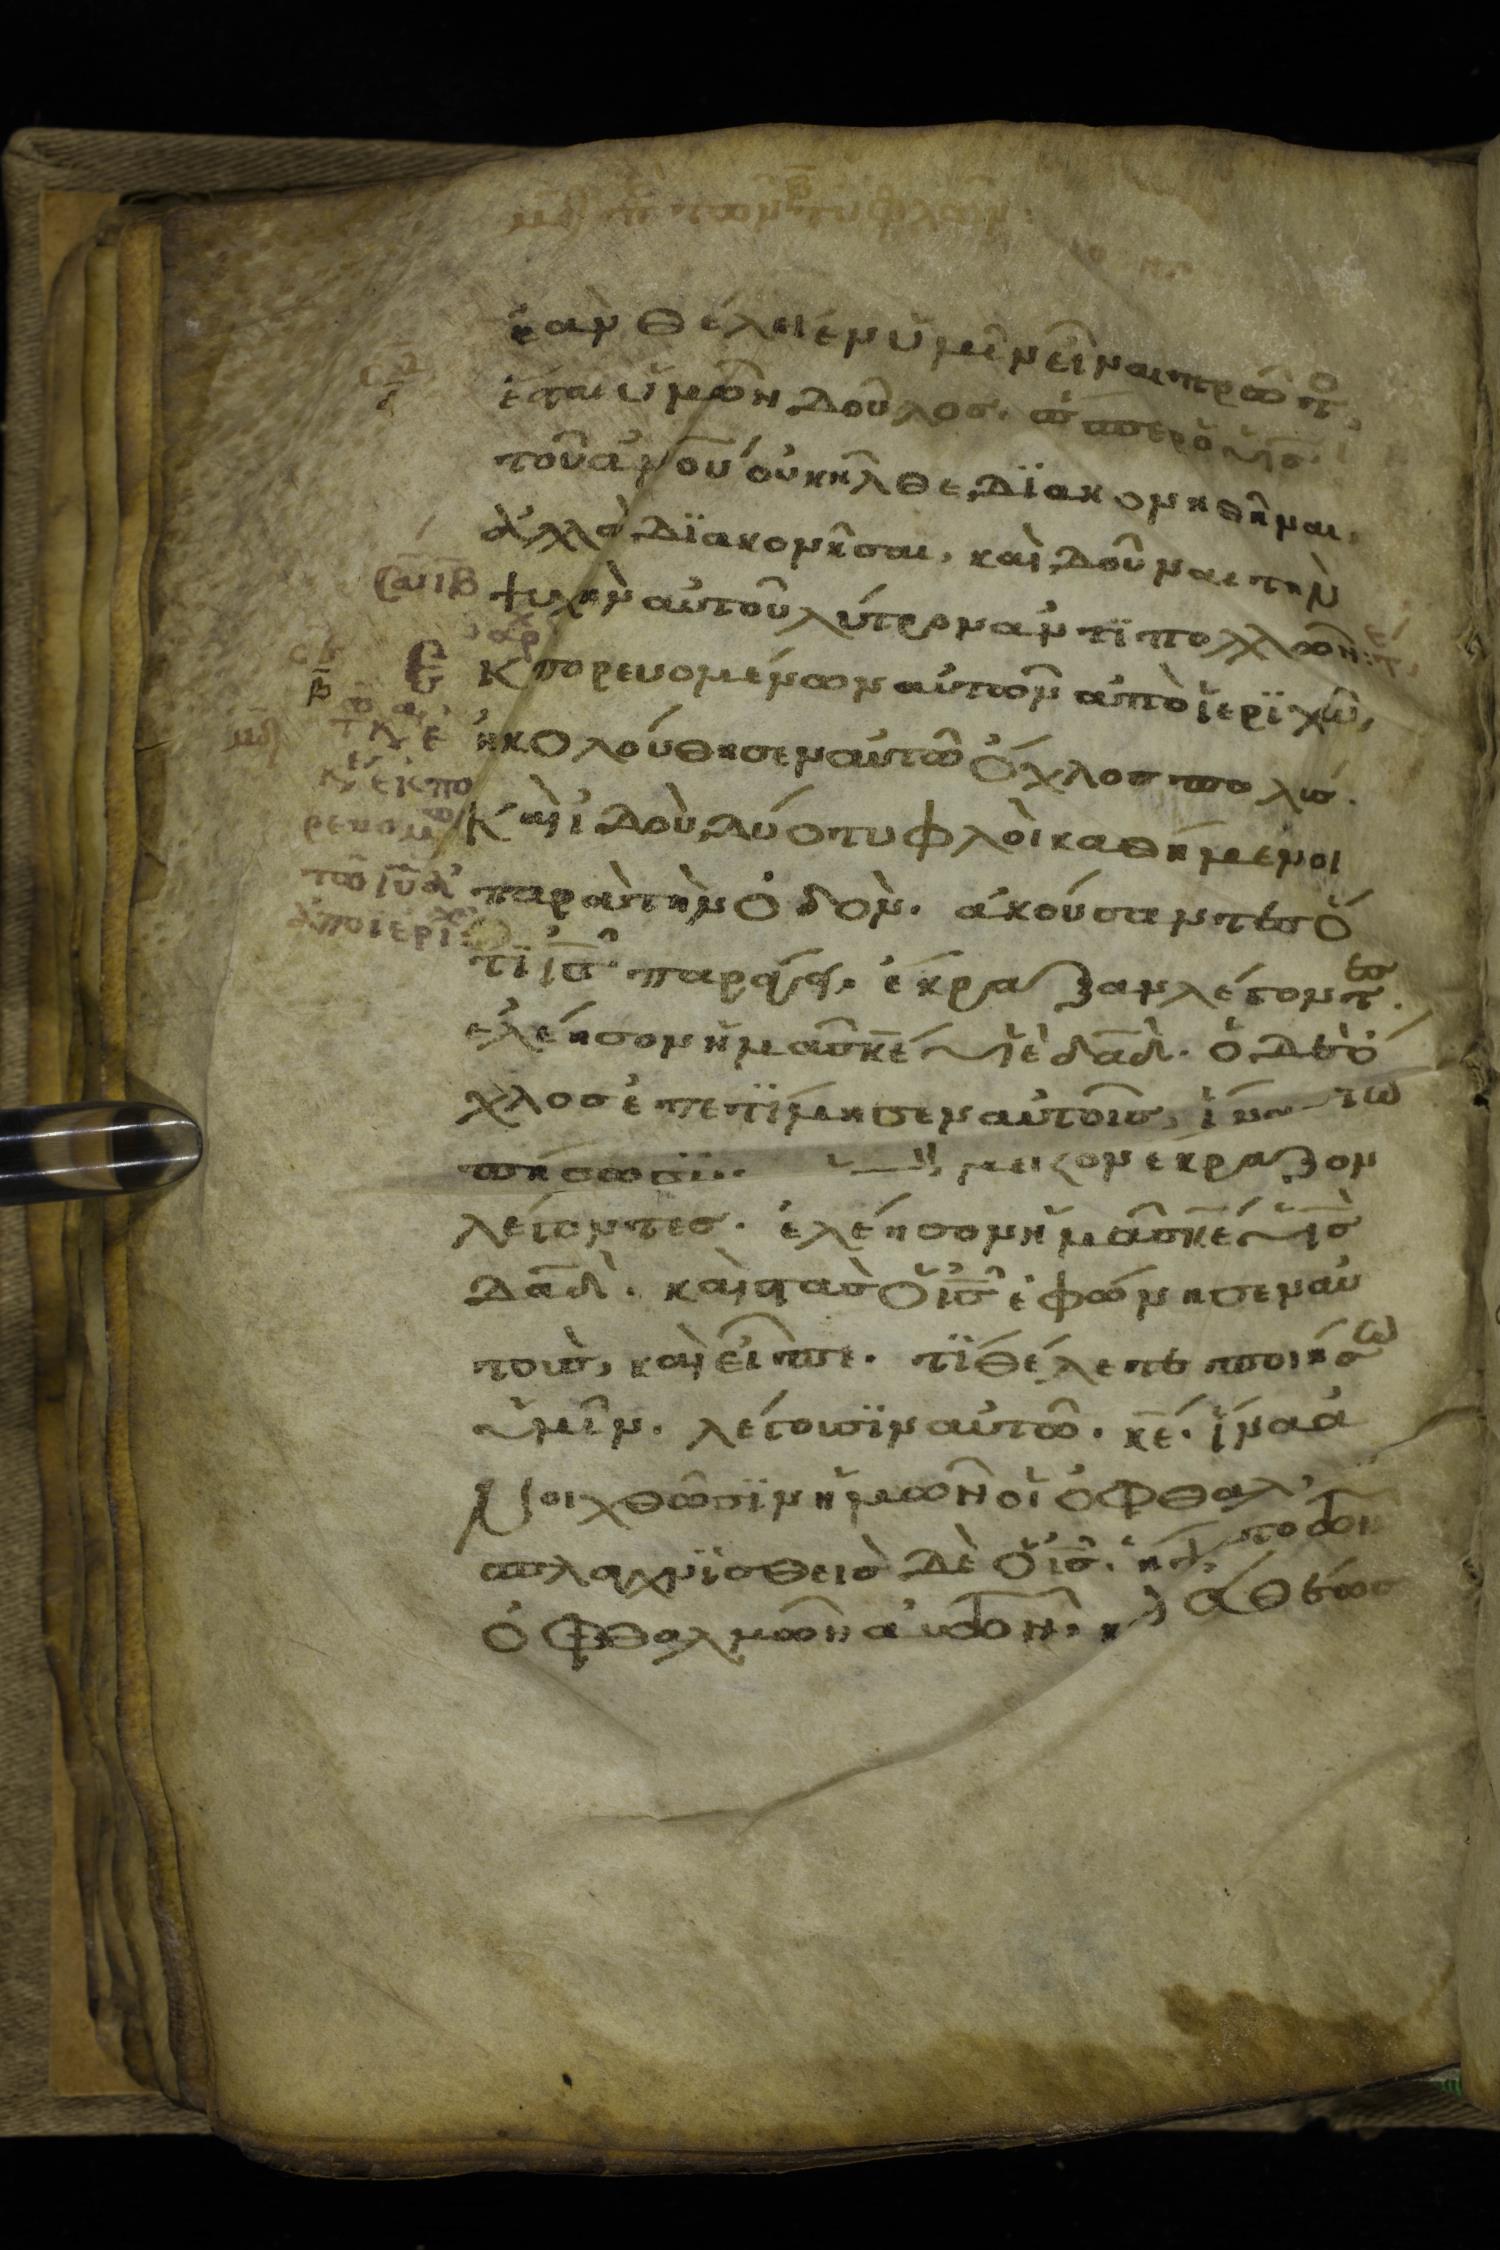 μδ πε τῶν β τυφλῶν:
ἐὰν θέλει ἐν ὑμῖν εἶναι πρῶτο
ἔσται ὑμῶν δοῦλος. ὥσπερ ὁ υἱς
τοῦ ἀνου οὐκ ἦλθε, διακονηθῆναι,
ἀλλὰ διακονῆσαι, καὶ δοῦναι τὴν
ψυχὴν αὐτοῦ λύτρον ἀντὶ πολλῶν:
Ἐκπορευομένων αὐτῶν ἀπὸ ἱεριχῶ,
ἠκολούθησεν αὐτῶ ὄχλος πολύς.
Καὶ ἰδοὺ, δύο τυφλοὶ καθήμενοι
παρὰ τὴν ὁδὸν. ἀκούσαντες ὅ
τι ις παράγει. ἔκραξαν λέγοντες.
ἐλέησον ἡμᾶς κε υἱὲ δαδ. ὁ δὲ ὄ
χλος ἐπετίμησεν αὐτοῖς, ἵνα σιω
πήσωσιν. μεῖζον ἔκραζον
λέγοντες. ἐλέησον ἡμᾶς κε υἱς
δαδ. καὶ στὰς ὁ ις ἐφώνησεν αὐ
τοὺς, καὶ εἶπε. τί θέλετε ποιήσω
ὑμῖν. λέγουσιν αὐτῶ. κε. ἵνα ἀ
νοιχθῶσιν ἡμῶν οἱ ὀφθαλ
σπλαγχνισθεὶς δὲ ὁ ις. τῶν
ὀφθαλμῶν αὐτῶν. κ εὐθέως
μδ
τω κε
κ εκπο
ρευομ
τοῦ ιυ
ἀπὸ ἱερι